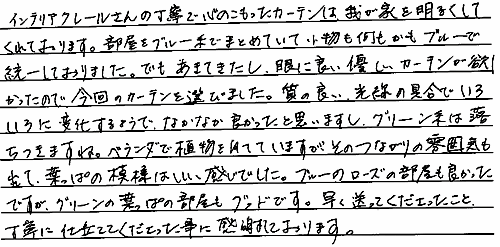 インテリアクレールさんの丁寧で心のこもったカーテンは、我が家を明るくして
くれております。部屋をブルー系でまとめていて小物も何もかもブルーで
統一しておりました。でもあきてきたし、眼に良い優しいカーテンが欲し
かったので今回のカーテンを選びました。質の良い、光線の具合でいろ
いろに変化するようで、なかなか良かったと思いますし、グリーン系は落
ちつきますね。ベランダで植物を育てていますがそのつながりの雰囲気も
出て、葉っぱの模様はいい感じでした。ブルーのローズの部屋も良かった
ですが、グリーンの葉っぱの部屋もグッドです。早く送ってくださったこと、
丁寧に仕立ててくださった事に感謝しております。